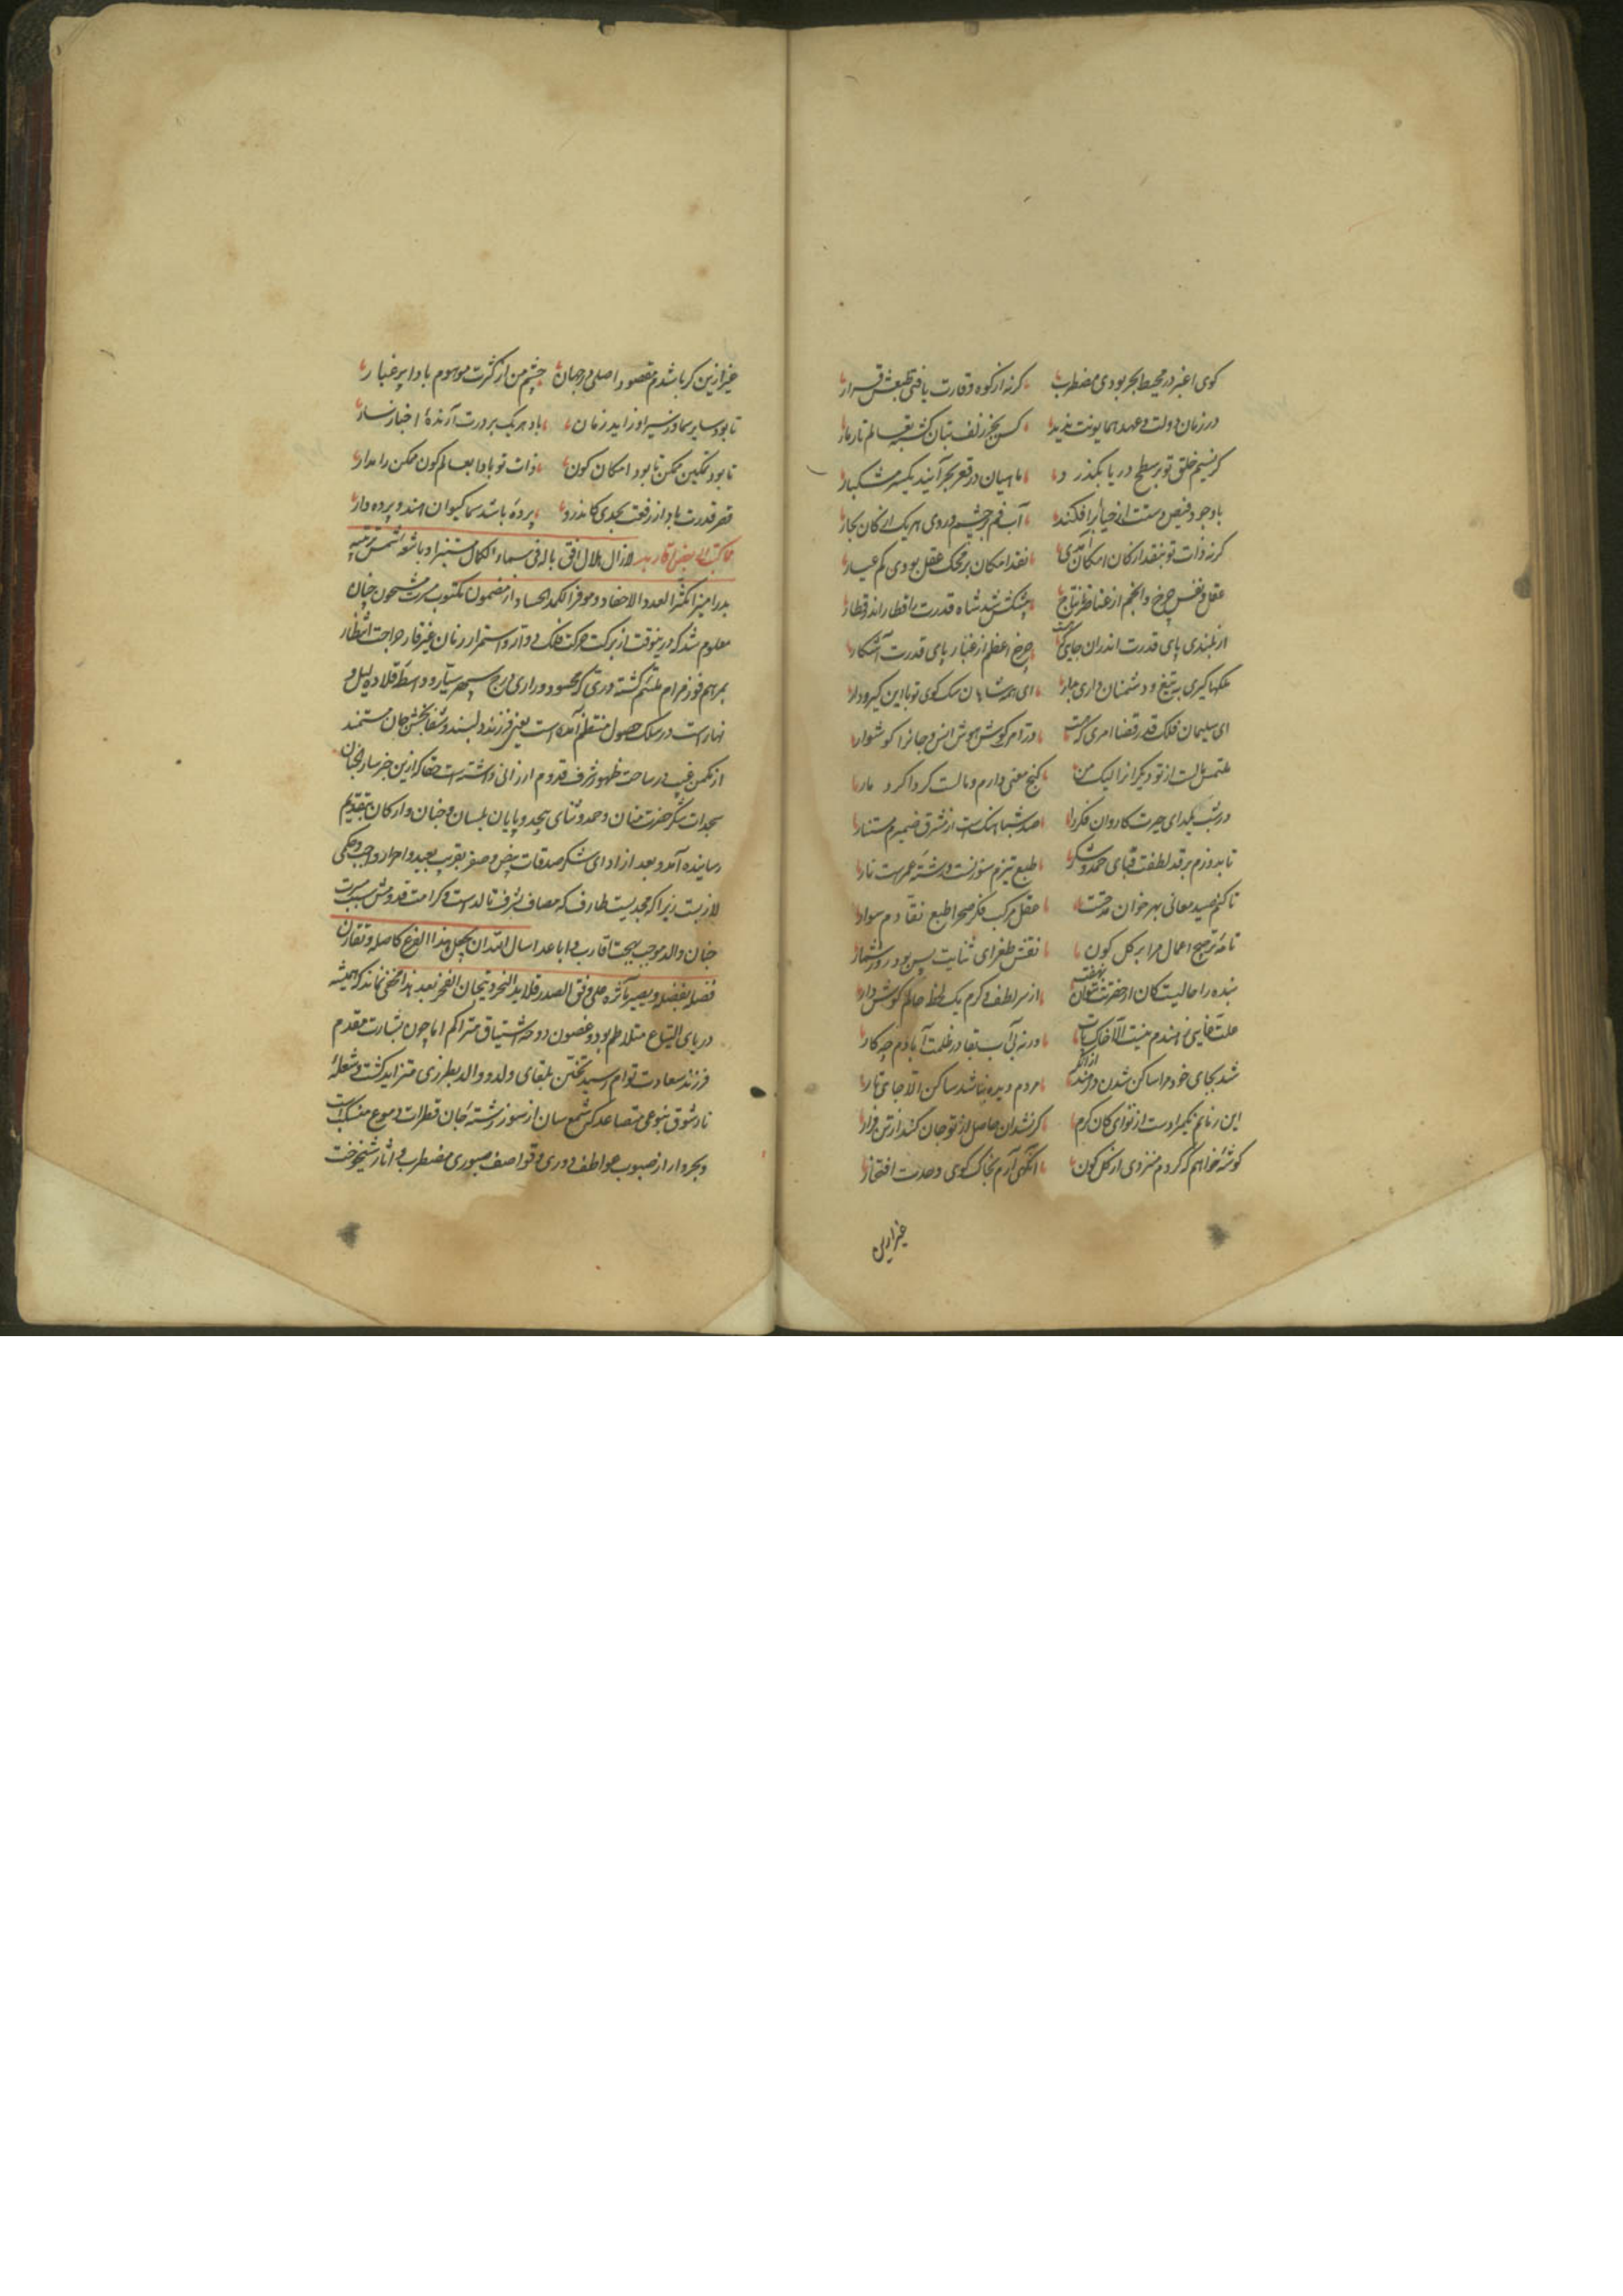 کوی اغبر در محیط ابحر بودی مضطرب کرنه از کوه وقارت یافتی طبعش قرار
در زمان دولت و عهد همایونت ندید کس بجز زلف بتان کشته بعالم تارمار
کر نسیم خلق تو بر سطح دریا بکذرد ماهیان در قعر بحر آیند یکسر مشکبار
با وجود فیض دستت از حیا برافکند آب فم بر چشم و روی هر یک از کان بحار
کرنه ذات تو بنقد ارکان امکان آمدی نقد امکان بر محک عقل بودی کم عیار
عقل و نفس و چرخ و انجم از عناصر نتاج پیشکش شد شاه قدرت را قطار اندر قطار
از بلندی پای قدرت اندران جایی که هست چرخ اعظم از غبار پای قدرت آشکار
ملکها کیری به تیغ و دشمنان داری بدار ای همه شاهان سک کوی تو با این کیرودار
ای سلیمان فلک قدر قضا امری که هست در امر کوشش هوش انس و جانرا کوشوار
ملتمس مالست از تو دیکرانرا لیک من کنج معنی دارم و مالست کرداکرد مار
در شب یلدای حیرت کاروان فکر را صد شباهنکست از مشرق ضمیرم مستنار
تا بدوزم بر قد لطفت قبای حمد و شکر طبع تیزم سوزنست و رشته عمرست تار
تا کنم صید معانی بهر خوان مدحتت عقل مرکب فکر صحرا طبع نقادم سوار
نامه ترجیح اعمال مرا بر کل کون نقش طغرای ثنایت بس بود روز شمار
بنده را حالیست کان از حضرتت نتوان نهفت از سر لطف و کرم یک لحظه حالم کوش دار
علت غایی ز هندم نیست الا خاک پات ورنه بی آب بقا در ظلمت آبادم چه کار
شد بجای خود مرا ساکن شدن در هند از انک مردم دیده نباشد ساکن الا جای تار
این زمانم یکمرادست از نوای کان کرم کر نشد آن حاصل از تو جان کشد از تن فرار
کوشه خواهم که کردم منزوی از کل کون انکهی آرم بخاک کوی وحدت افتقار
غیر ازین
غیر ازین کر باشدم مقصود اصلی در جهان چشم من از کثرت موهوم بادا پر غبار
تا بود سایر سما وز سیر او زاید زمان باد هر یک بر درت آرنده اخبار سار
تا بود تمکین ممکن تا بود امکان کون ذات تو بادا بعالم کون ممکن را مدار
قصر قدرت باد از رفعت بحدی کاندرو پرده باشد سما کیوان هندو پرده دار
مما کتب الی بعض اقاربه لازال هلال افق باله فی سماء الکمال مستنیرا و باشعه شمس تربیته
بدرا منیرا مکثر العدد و الاحفاد و موفر الکمد للحساد از مضمون مکتوب مسرت مشحون چنان
معلوم شد که درینوقت از برکت حرکت فلک دوار و استمرار زمان غیر قار جراحت انتظار
بمرهم فوز مرام ملتئم کشته و دری که محسود دراری درج سپهر سیار و واسطه قلاده لیل و
نهارست در سلک حصول منتظم آمده است یعنی فرزند دلبند و شفابخش جان مستمند
از مکمن غیب در ساحت ظهور شرف قدوم ارزانی داشته است حقا که ازین خبر سار لجنان
سجدات شکر حضرت منان و حمد و ثنای بیحد و پایان بلسان و جنان و ارکان بتقدیم
رسانیده آمد و بعد از ادای شکر صدقات بیض و صفر بقریب و بعید و احرار واجب و حکمی
لازبست زیرا که مجدیست طارف که مضاف بشرف تالد است و کرامت قدومش سبب مسرت
جنان والد و موجب بهجت اقارب و اباعد اسال الله ان یجعل هذا الفرع کاصله و تقارن
فضله بفضله و یصیر مآثره علی وفق الصدر قلاید النحر و تیجان الفخر بعد هذا مخفی نماند که همیشه
دریای التیاع متلاطم بود و غصون دوحه اشتیاق متراکم اما چون بشارت مقدم
فرزند سعادت توام رسید تحنن بلقای ولد و والد بطرزی متزاید کشت و شعله
نار شوق بنوعی متصاعد که شمع سان از سوز رشته جان قطرات دموع منسکبست
و بحروار از صبوب عواطف دوری و قواصف صبوری مضطرب